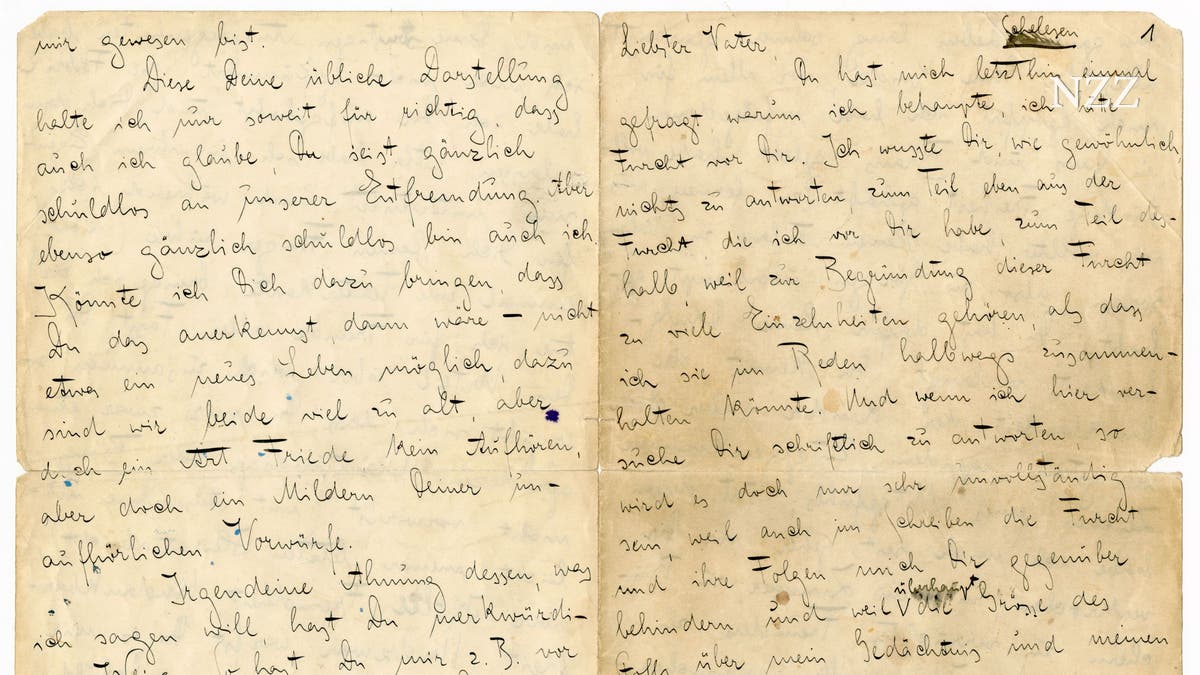 mir gewesen bist.
Diese Deine übliche Darstellung
halte ich nur soweit für richtig, dass
auch ich glaube, Du seist gänzlich
schuldlos an unserer Entfremdung. Aber
ebenso gänzlich schuldlos bin auch ich.
Könnte ich Dich dazu bringen, dass
Du das anerkennst dann wäre – nicht
etwa ein neues Leben möglich, dazu
sind wir beide viel zu alt, aber
doch ein Art Friede kein Aufhören,
aber doch ein Mildern Deiner un-
aufhörlichen Vorwürfe.
Irgendeine Ahnung dessen, was
ich sagen will, hast Du merkwürdi-
hast Du mir z. B. vor
Schelesen
1
Liebster Vater,
Du hast mich letzthin einmal
gefragt, warum ich behaupte, ich hätte
Furcht vor Dir. Ich wusste Dir, wie gewöhnlich,
nichts zu antworten, zum Teil eben aus der
Furcht, die ich vor Dir habe, zum Teil des-
halb, weil zur Begründung dieser Furcht
zu viele Einzelnheiten gehören, als dass
ich sie im Reden halbwegs zusammen-
halten könnte. Und wenn ich hier ver-
suche Dir schriftlich zu antworten, so
wird es doch nur sehr unvollständig
sein, weil auch im Schreiben die Furcht
und ihre Folgen mich Dir gegenüber
überhaupt
behindern und weil die Grösse des
über mein Gedächtnis und meinen
NZZ